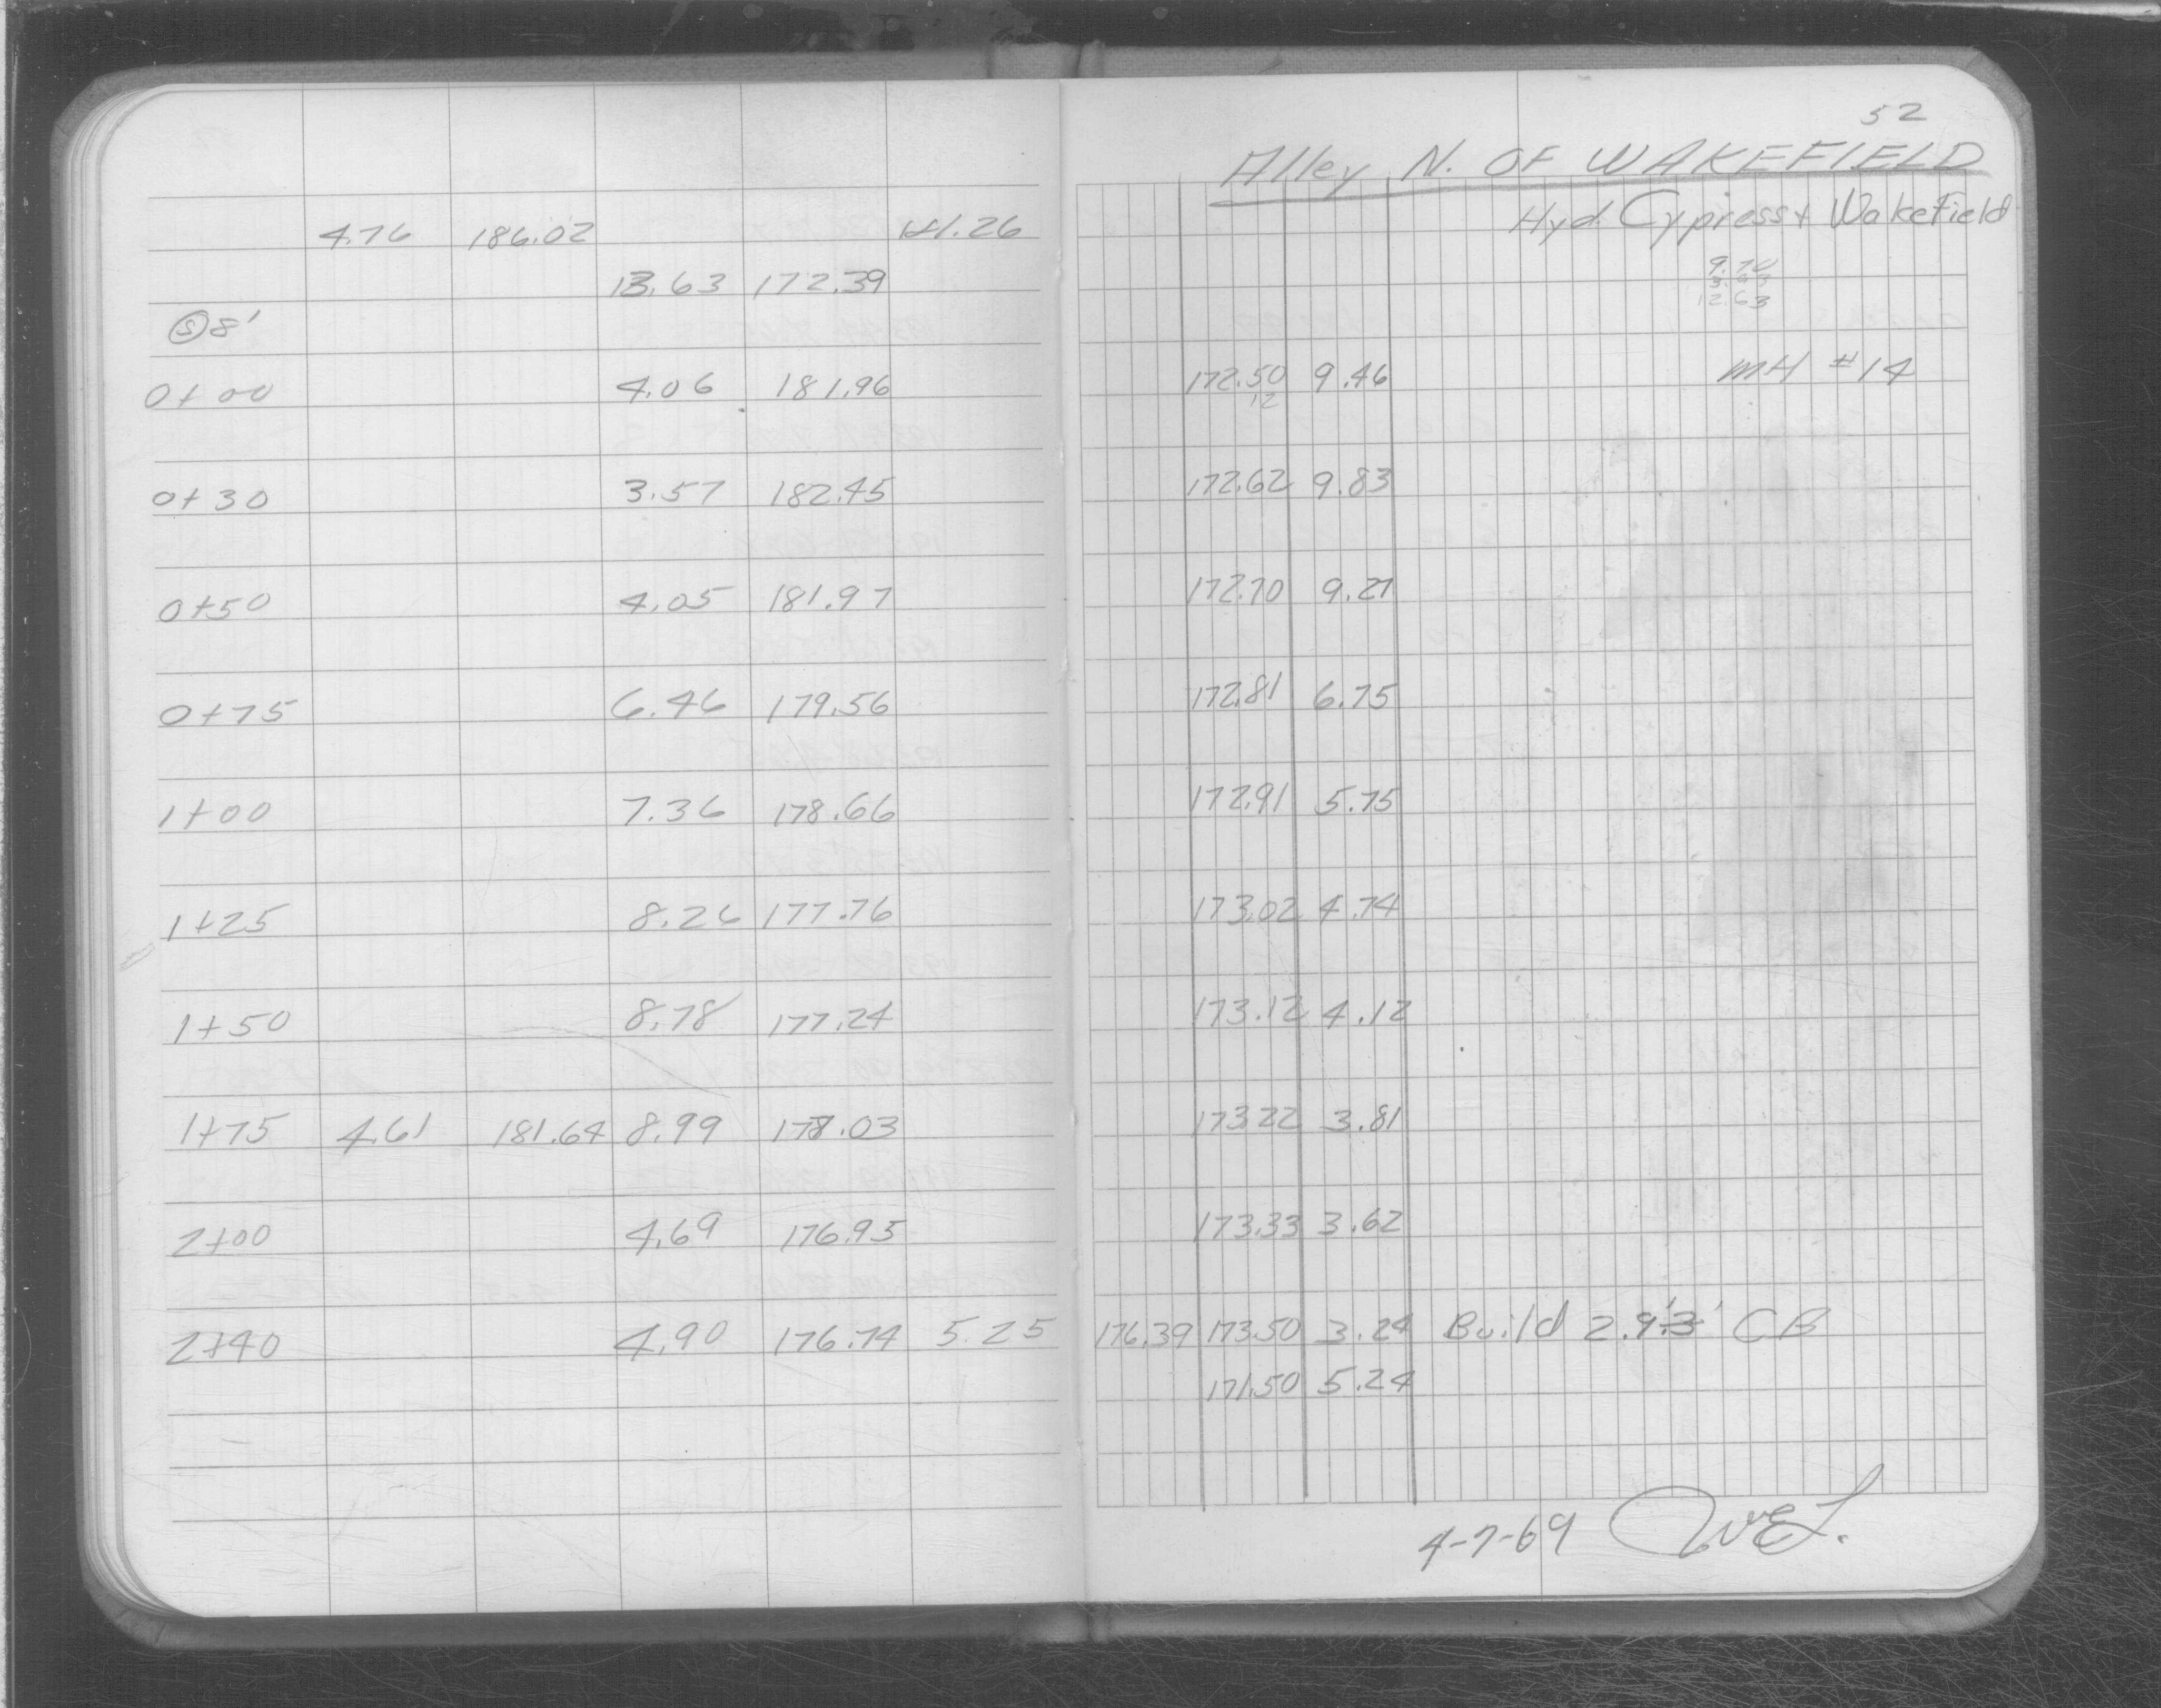 52
Alley N. OF WAKEFIELD
4.76 186.02 181.26 Hyd. Cypress + Wakefield
13.63 172.39 9.70
3.63
12.63
Ⓢ8'
0+00 4.06 181.96 172.50 9.46 MH #14
12
0+30 3.57 182.45 172.62 9.83
0+50 4.05 181.97 172.70 9.27
0+75 6.46 179.56 172.81 6.75
1+00 7.36 178.66 172.91 5.75
1+25 8.26 177.76 173.02 4.74
1+50 8.78 177.24 173.12 4.12
1+75 4.61 181.64 8.99 177.03 173.22 3.81
2+00 4.69 176.95 173.33 3.62
2+40 4.90 176.74 5.25 176.39 173.50 3.24 Build 2.9'x3' CB
171.50 5.24
4-7-69 WEL.